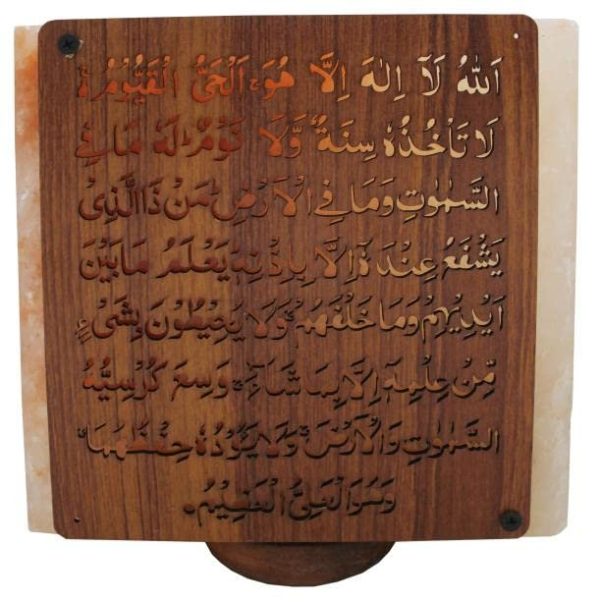 اَللّٰهُ لَآ اِلٰهَ اِلَّا هُوَۚ اَلْحَيُّ الْقَيُّوْمُ ۚ
لَا تَاْخُذُهٗ سِنَةٌ وَّلَا نَوْمٌ ؕ لَهٗ مَا فِي
السَّمٰوٰتِ وَمَا فِي الْاَرْضِ ؕ مَنْ ذَا الَّذِيْ
يَشْفَعُ عِنْدَهٗٓ اِلَّا بِاِذْنِهٖ ؕ يَعْلَمُ مَا بَيْنَ
اَيْدِيْهِمْ وَمَا خَلْفَهُمْ ۚ وَلَا يُحِيْطُوْنَ بِشَيْءٍ
مِّنْ عِلْمِهٖٓ اِلَّا بِمَا شَآءَ ۚ وَسِعَ كُرْسِيُّهُ
السَّمٰوٰتِ وَالْاَرْضَ ۚ وَلَا يَؤُدُهٗ حِفْظُهُمَا ۚ
وَهُوَ الْعَلِيُّ الْعَظِيْمُ .